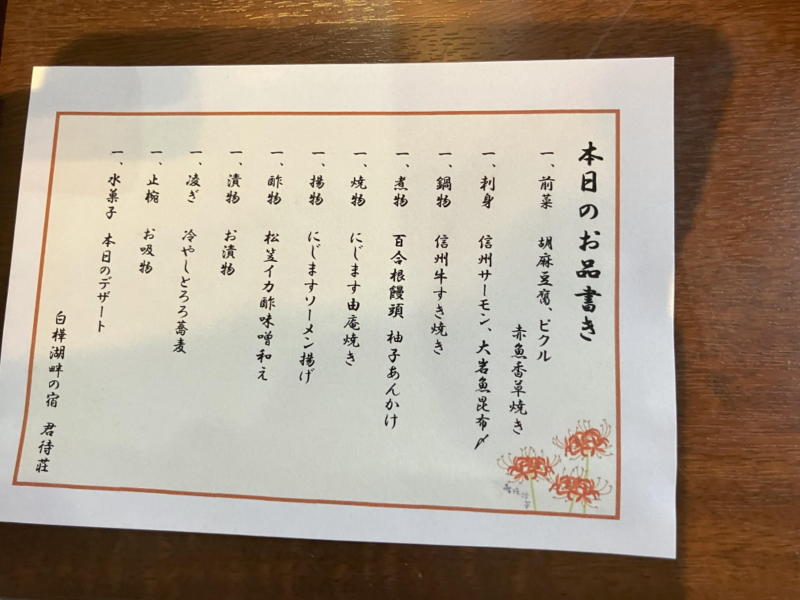 本日のお品書き
一、前菜 胡麻豆腐、ピクル
赤魚香草焼き
一、刺身 信州サーモン、大岩魚昆布〆
一、鍋物 信州牛すき焼き
一、煮物 百合根饅頭 柚子あんかけ
一、焼物 にじます由庵焼き
一、揚物 にじますソーメン揚げ
一、酢物 松笠イカ酢味噌和え
一、漬物 お漬物
一、凌ぎ 冷やしとろろ蕎麦
一、止椀 お吸物
一、水菓子 本日のデザート
白樺湖畔の宿 君待荘